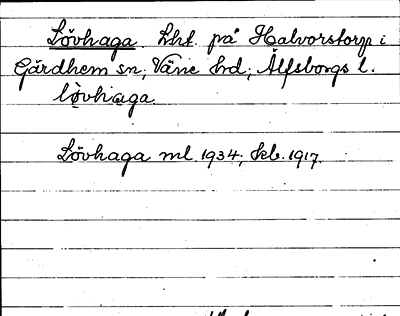 Lövhaga. Lht. på Halvorstorp i
Gärdhem sn, Väne hd, Älfsborgs l.
lòvhaga.
Lövhaga ml. 1934, Skb. 1917.